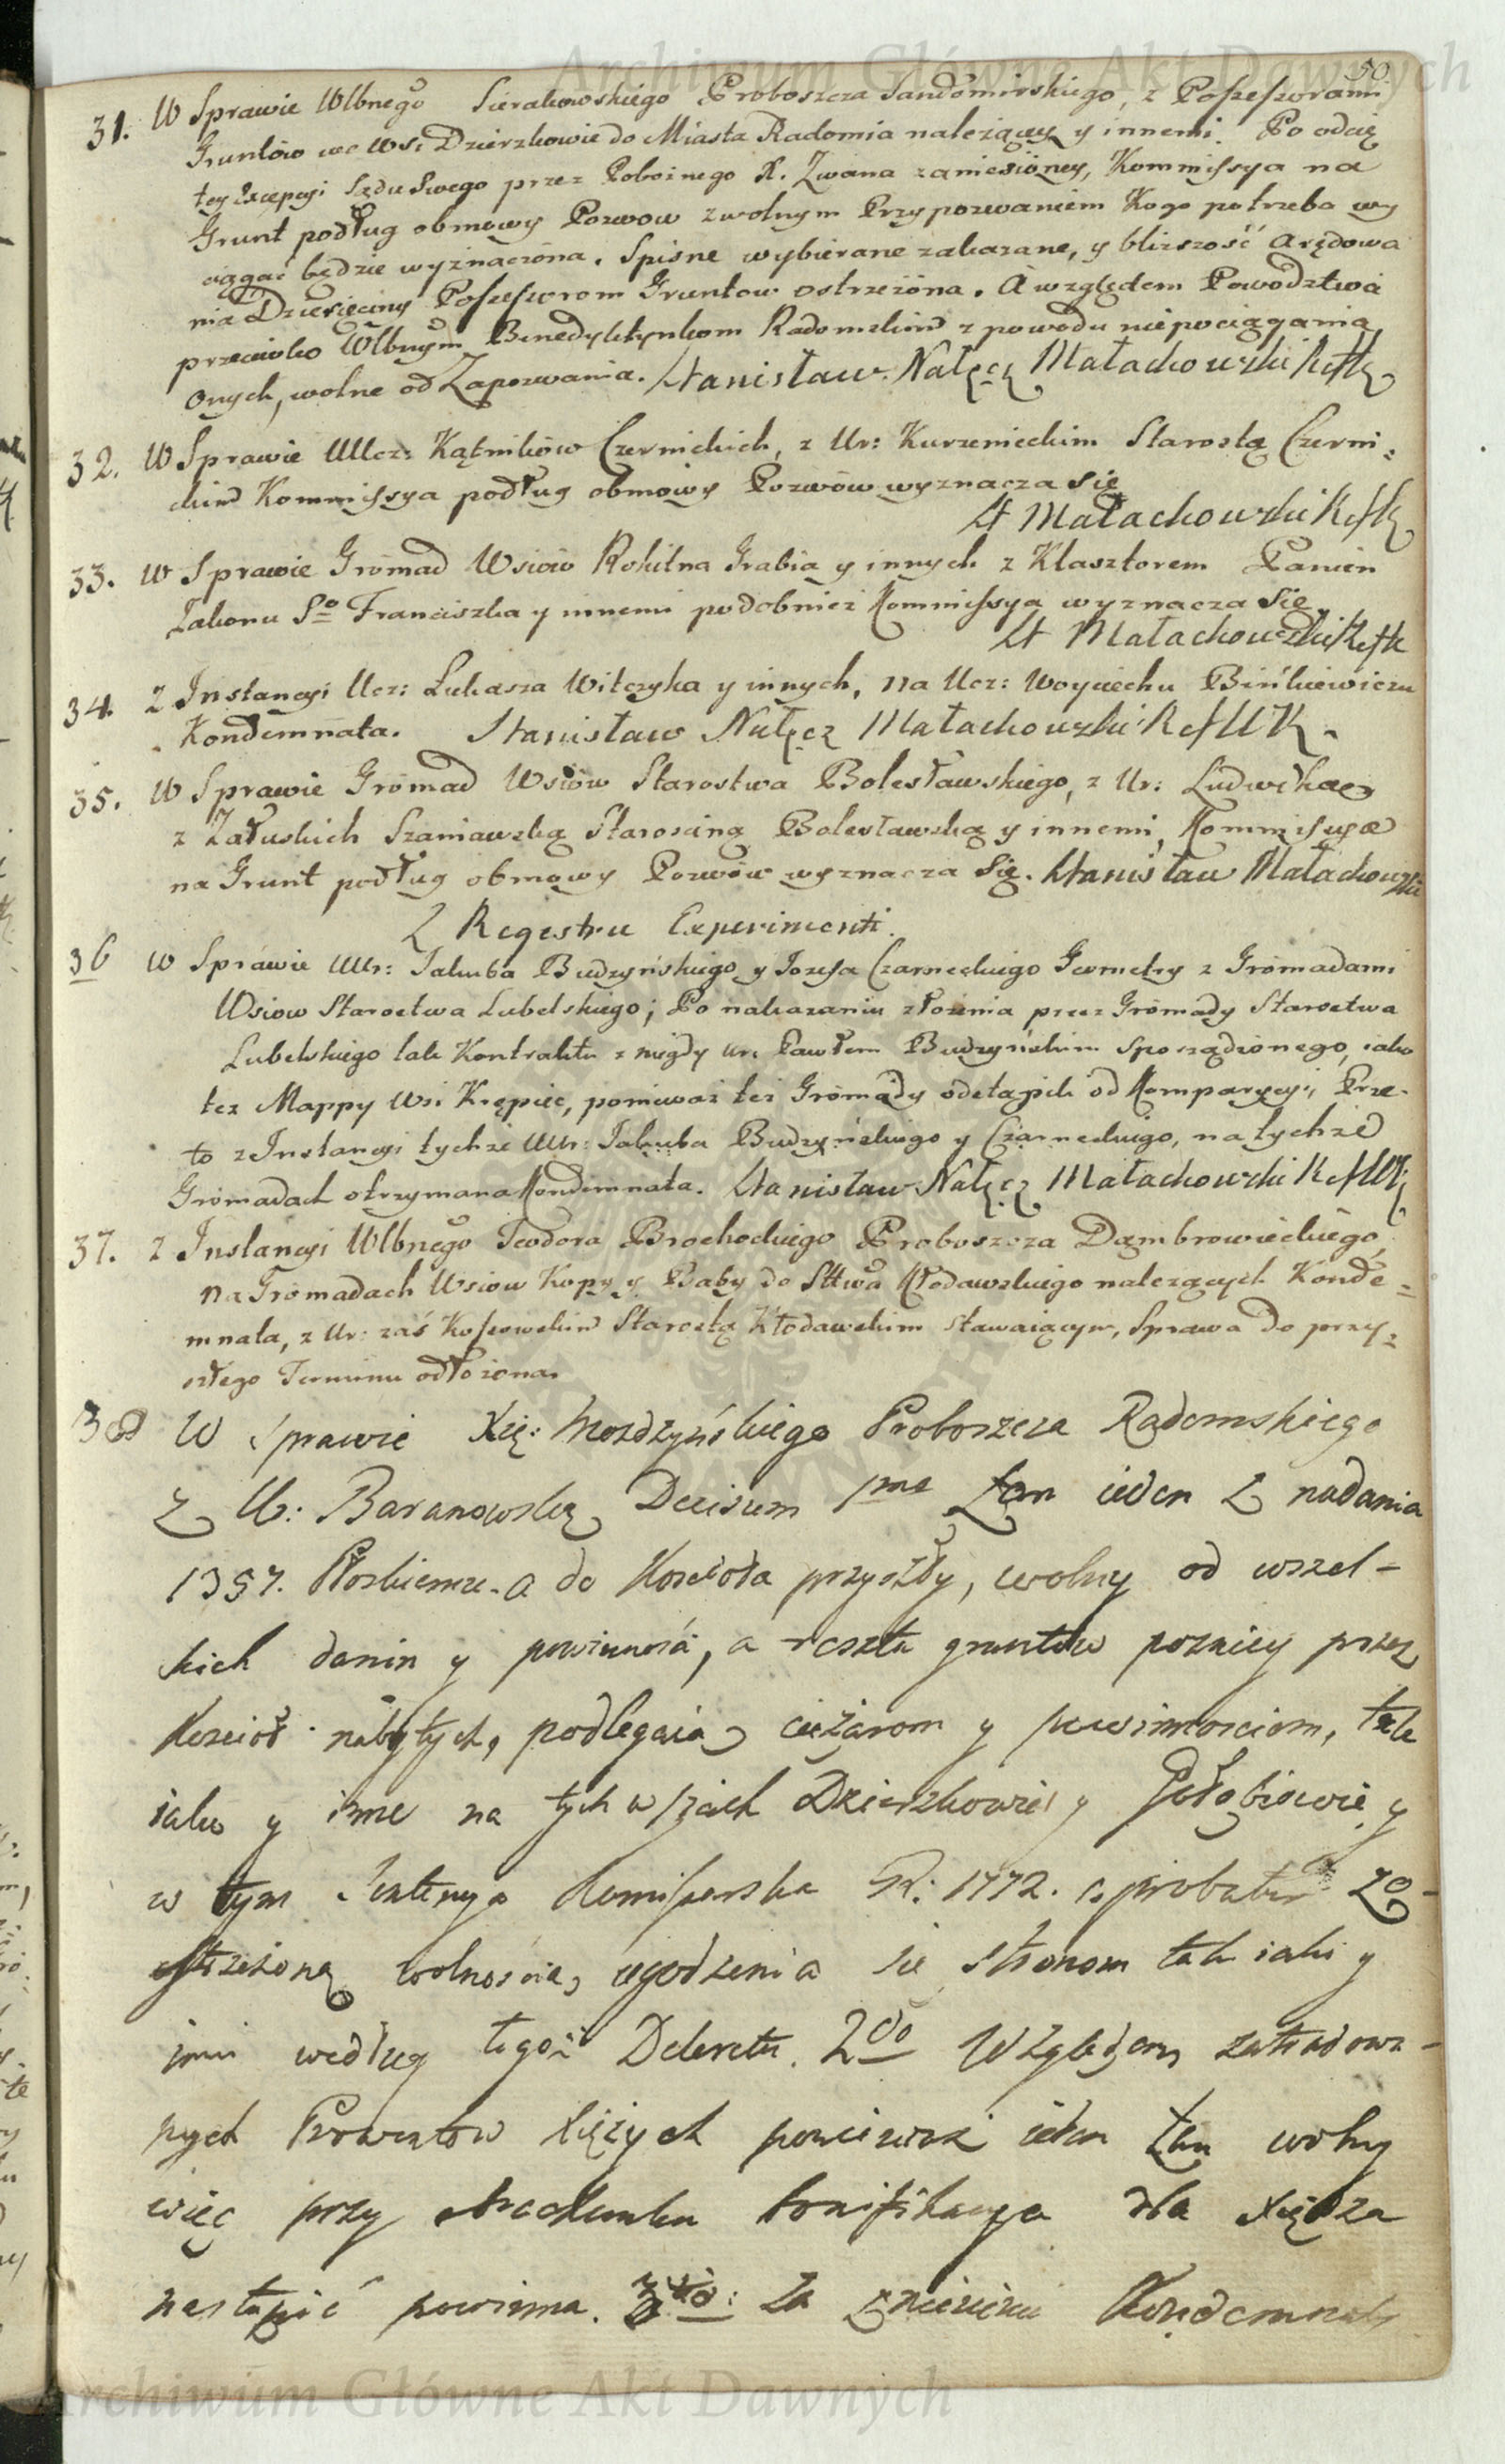 50.
31. W Sprawie Wlbnego Sierakowskiego Proboszcza Sandomirskiego, z Possessorami
Gruntów we Wsi Dzierzkowie do Miasta Radomia należący y innemi. Po odcię
tey Excepcyi Sądu Swego przez Pobożnego X. Zwana zaniesioney, Kommissya na
Grunt podług obmowy Pozwow z wolnym Przypozwaniem Kogo potrzeba wy
ciągać będzie wyznaczona. Spisne wybierane zakazane, y blizszość Arędowa
nia Dziesięciny Possessorom Gruntow ostrzeżona. A względem Powodztwa
przeciwko Wlbnym Benedyktynkom Radomskim z powodu niepociągania
Onych, wolne od Zapozwania. Stanisław Nałęcz Małachowski
32. W Sprawie UUcz: Kątników Czernickich, z Ur: Kurzenieckim Starostą Czerni=
ckim Kommissya podług obmowy Pozwów wyznacza Się
St Małachowski
33. W Sprawie Gromad Wsiów Rokitna Grabia y innych z Klasztorem Panien
Zakonu So Franciszka y innemi podobnież Kommissya wyznacza Się.
St Małachowski
34. Z Instancyi Ucz: Łukasza Witczyka y innych, na Ucz: Woyciechu Bińkiewiczu
Kondemnata. Stanisław Nałęcz Małachowski
35. W Sprawie Gromad Wsiów Starostwa Bolesławskiego, z Ur: Ludwiką
z Załuskich Szaniawską Starosciną Bolesławską y innemi, Kommissya
na Grunt podług obmowy Pozwów wyznacza Się. Stanisław Małachowski
Z Regestru Experimenti.
36 W Sprawie UUr: Jakuba Budzyńskiego y Jozefa Czarneckiego Geometry z Gromadami
Wsiow Starostwa Lubelskiego; Po nakazaniu złożenia przez Gromady Starostwa
Lubelskiego tak Kontraktu z niegdy Ur: Pawłem Budzyńskim sporządzonego, iako
też Mappy Wsi Krępiec, ponieważ też Gromady odstąpili od Komparycyi, Prze-
to z Instancyi tychże UUr: Jakuba Budzyńskiego y Czarneckiego, na tychże
Gromadach otrzymana Kondemnata. Stanisław Nałęcz Małachowski
37. Z Instancyi Wlbnego Teodora Brochockiego Proboszcza Dąmbrowieckiego
na Gromadach Wsiow Kopy y Baby do Sttwa Kłodawskiego należących Konde=
mnata, z Ur: zaś Kossowskim Starostą Kłodawskim stawaiącym, Sprawa do przy=
szłego Terminu odłożona.
38 W Sprawie Xię: Mozdzyńskiego Proboszcza Radomskiego
Z Ur: Baranowską Decisum 1mo Łan ieden Z nadania
1357. a do Koscioła przyszły, wolny od wszel-
kich danin y powinnosci, a reszta gruntów pozniey przez
Kosciół nabytych, podlegaią ciężarom y powinnosciom, tak
iako y inne na tych wsiach Dzierzkowie y Gołębiowie y
w tym Sentencya Komissarska R: 1772. aprobatur Zo-
strzeżoną wolnością ugodzenia się stronom tak iaki y
inni według tegoż Dekretu. 2do Względem zatradowa-
nych Prowentów Xiężych ponieważ ieden łan wolny
więc przy obrachunku bonifikacya dla Xiędza
nastąpić powinna. 3tio: Za zniesieniem Kondemnaty
Archiwum Główne Akt Dawnych